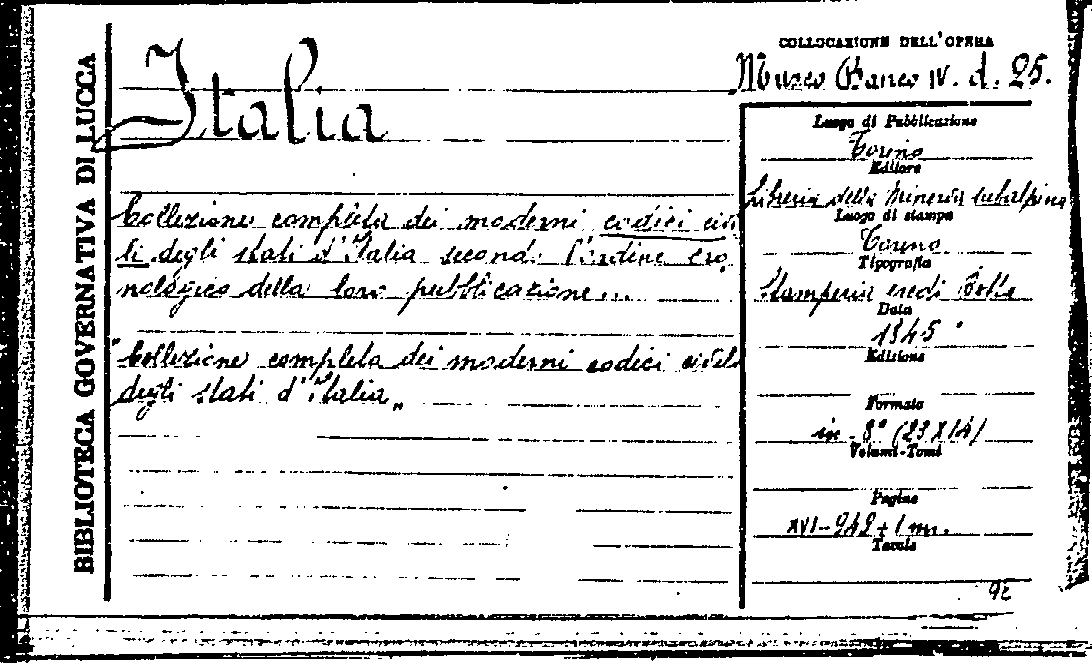 BIBLIOTECA GOVERNATIVA DI LUCCA
Italia
Collezione completa dei moderni codici civi
li degli stati d'Italia secondo l'ordine cro
nologico della loro pubblicazione...
"Collezione completa dei moderni codici civili
degli stati d'Italia„
COLLOCAZIONE DELL'OPERA
Museo Banco IV. d. 25.
Luogo di Pubblicazione
Torino
Editore
Libreria della Minerva subalpina
Luogo di stampa
Torino
Tipografia
Stamperia eredi Botta
Data
1845
Edizione
Formato
in-8° (23X14)
Volumi-Tomi
Pagine
XVI-942+1 nn.
Tavole